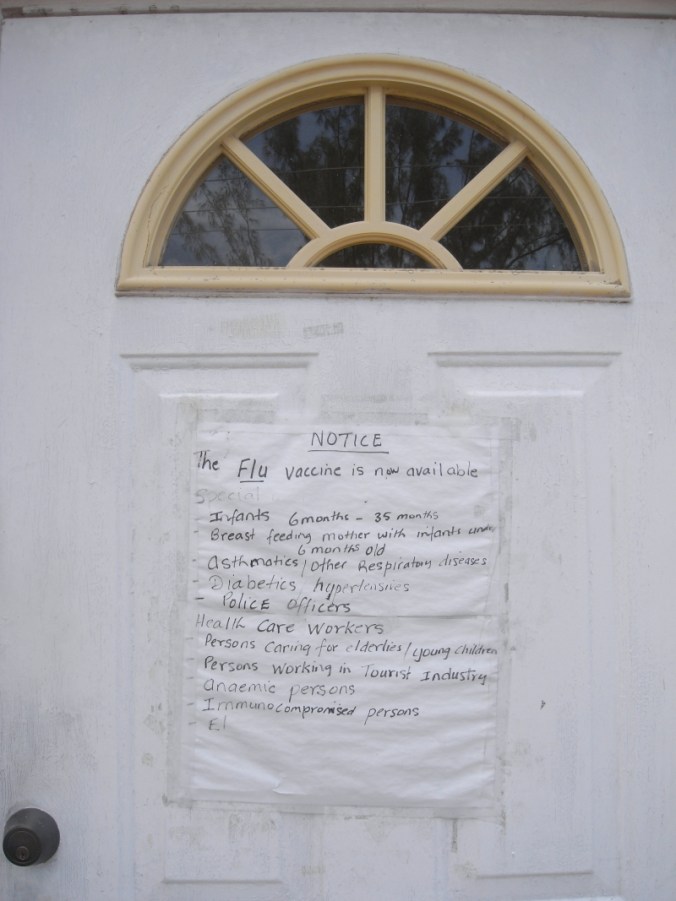 NOTICE
The Flu vaccine is now available
Special
- Infants 6 months - 35 months
- Breast feeding mother with infants under
6 months old
- Asthmatics/Other Respiratory diseases
- Diabetics hypertensives
- POLICE Officers
Health Care Workers
- Persons Caring for elderlies/young children
- Persons Working in Tourist Industry
Anaemic persons
- Immunocompromised persons
- El